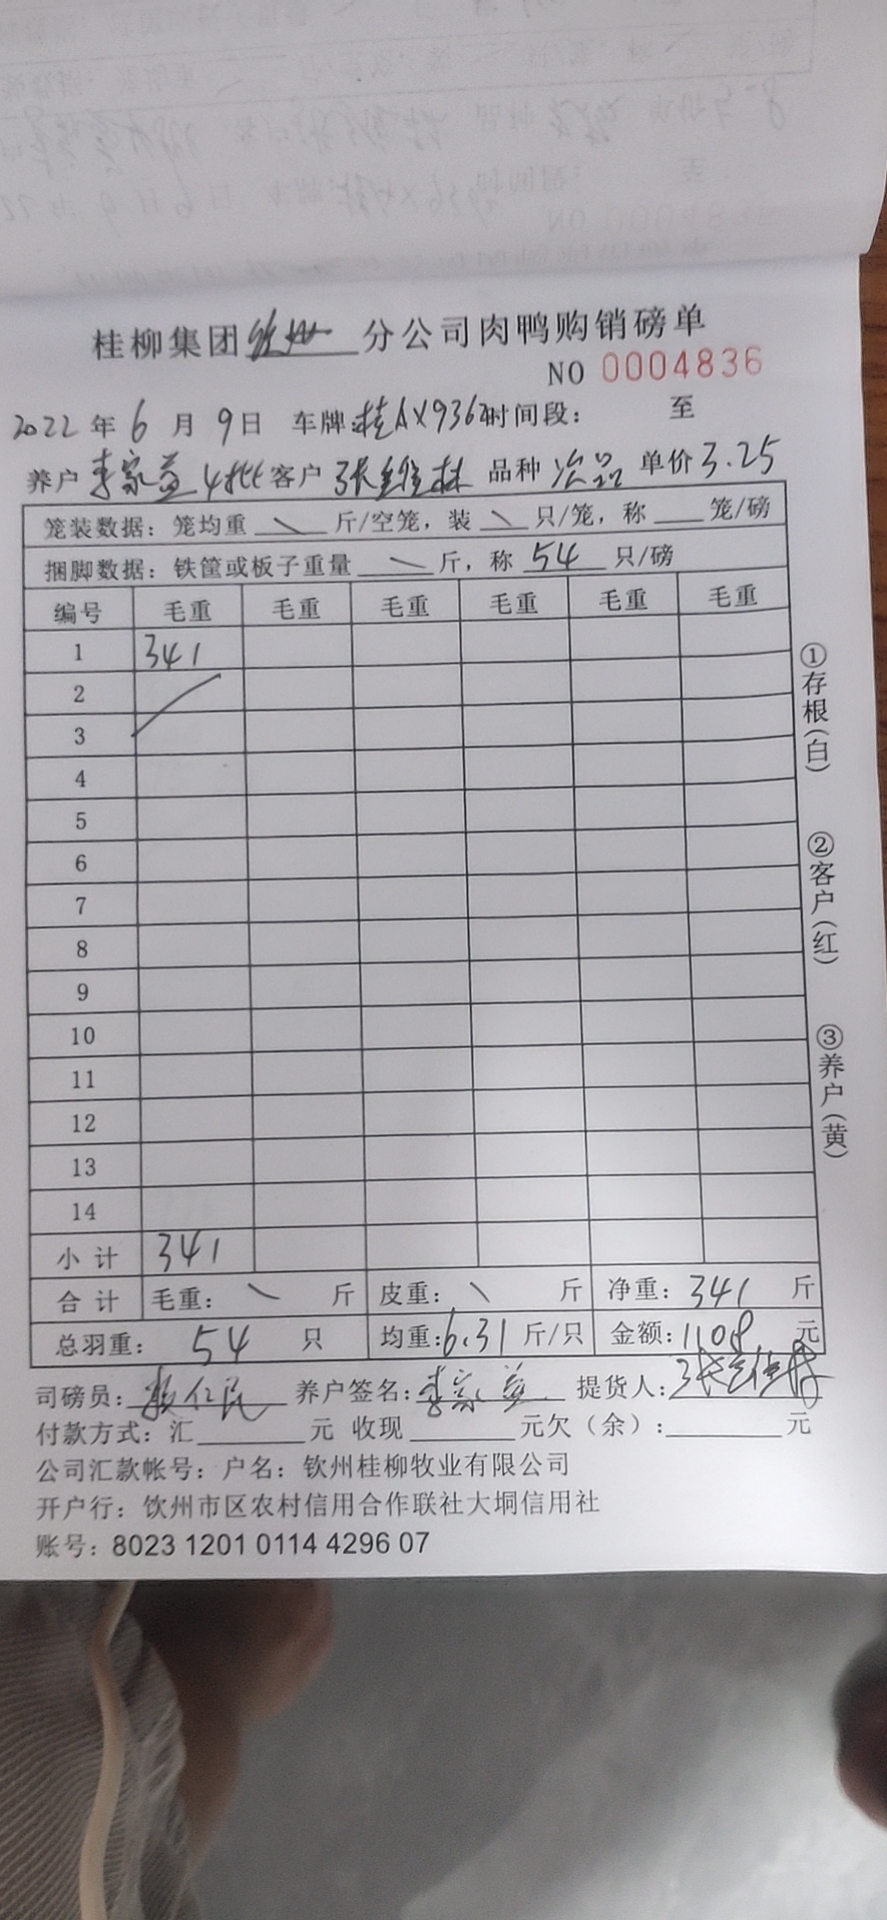 桂柳集团钦州分公司肉鸭购销磅单
NO 0004836
2022年6月9日 车牌:桂AX936 时间段: 至
养户 李家益 4批 客户 张 林 品种 次品 单价 3.25
笼装数据:笼均重 \ 斤/空笼,装 \ 只/笼,称 笼/磅
捆脚数据:铁筐或板子重量 \ 斤,称 54 只/磅
编号 毛重 毛重 毛重 毛重 毛重 毛重
1 341
2
3
4
5
6
7
8
9
10
11
12
13
14
小计 341
合计 毛重: \ 斤 皮重: \ 斤 净重: 341 斤
总羽重: 54 只 均重: 6.31 斤/只 金额: 1108 元
司磅员: 仁民 养户签名: 李家益 提货人: 张
付款方式:汇 元 收现 元欠(余): 元
公司汇款帐号:户名:钦州桂柳牧业有限公司
开户行:钦州市区农村信用合作联社大垌信用社
账号:8023 1201 0114 4296 07
①存根(白)
②客户(红)
③养户(黄)